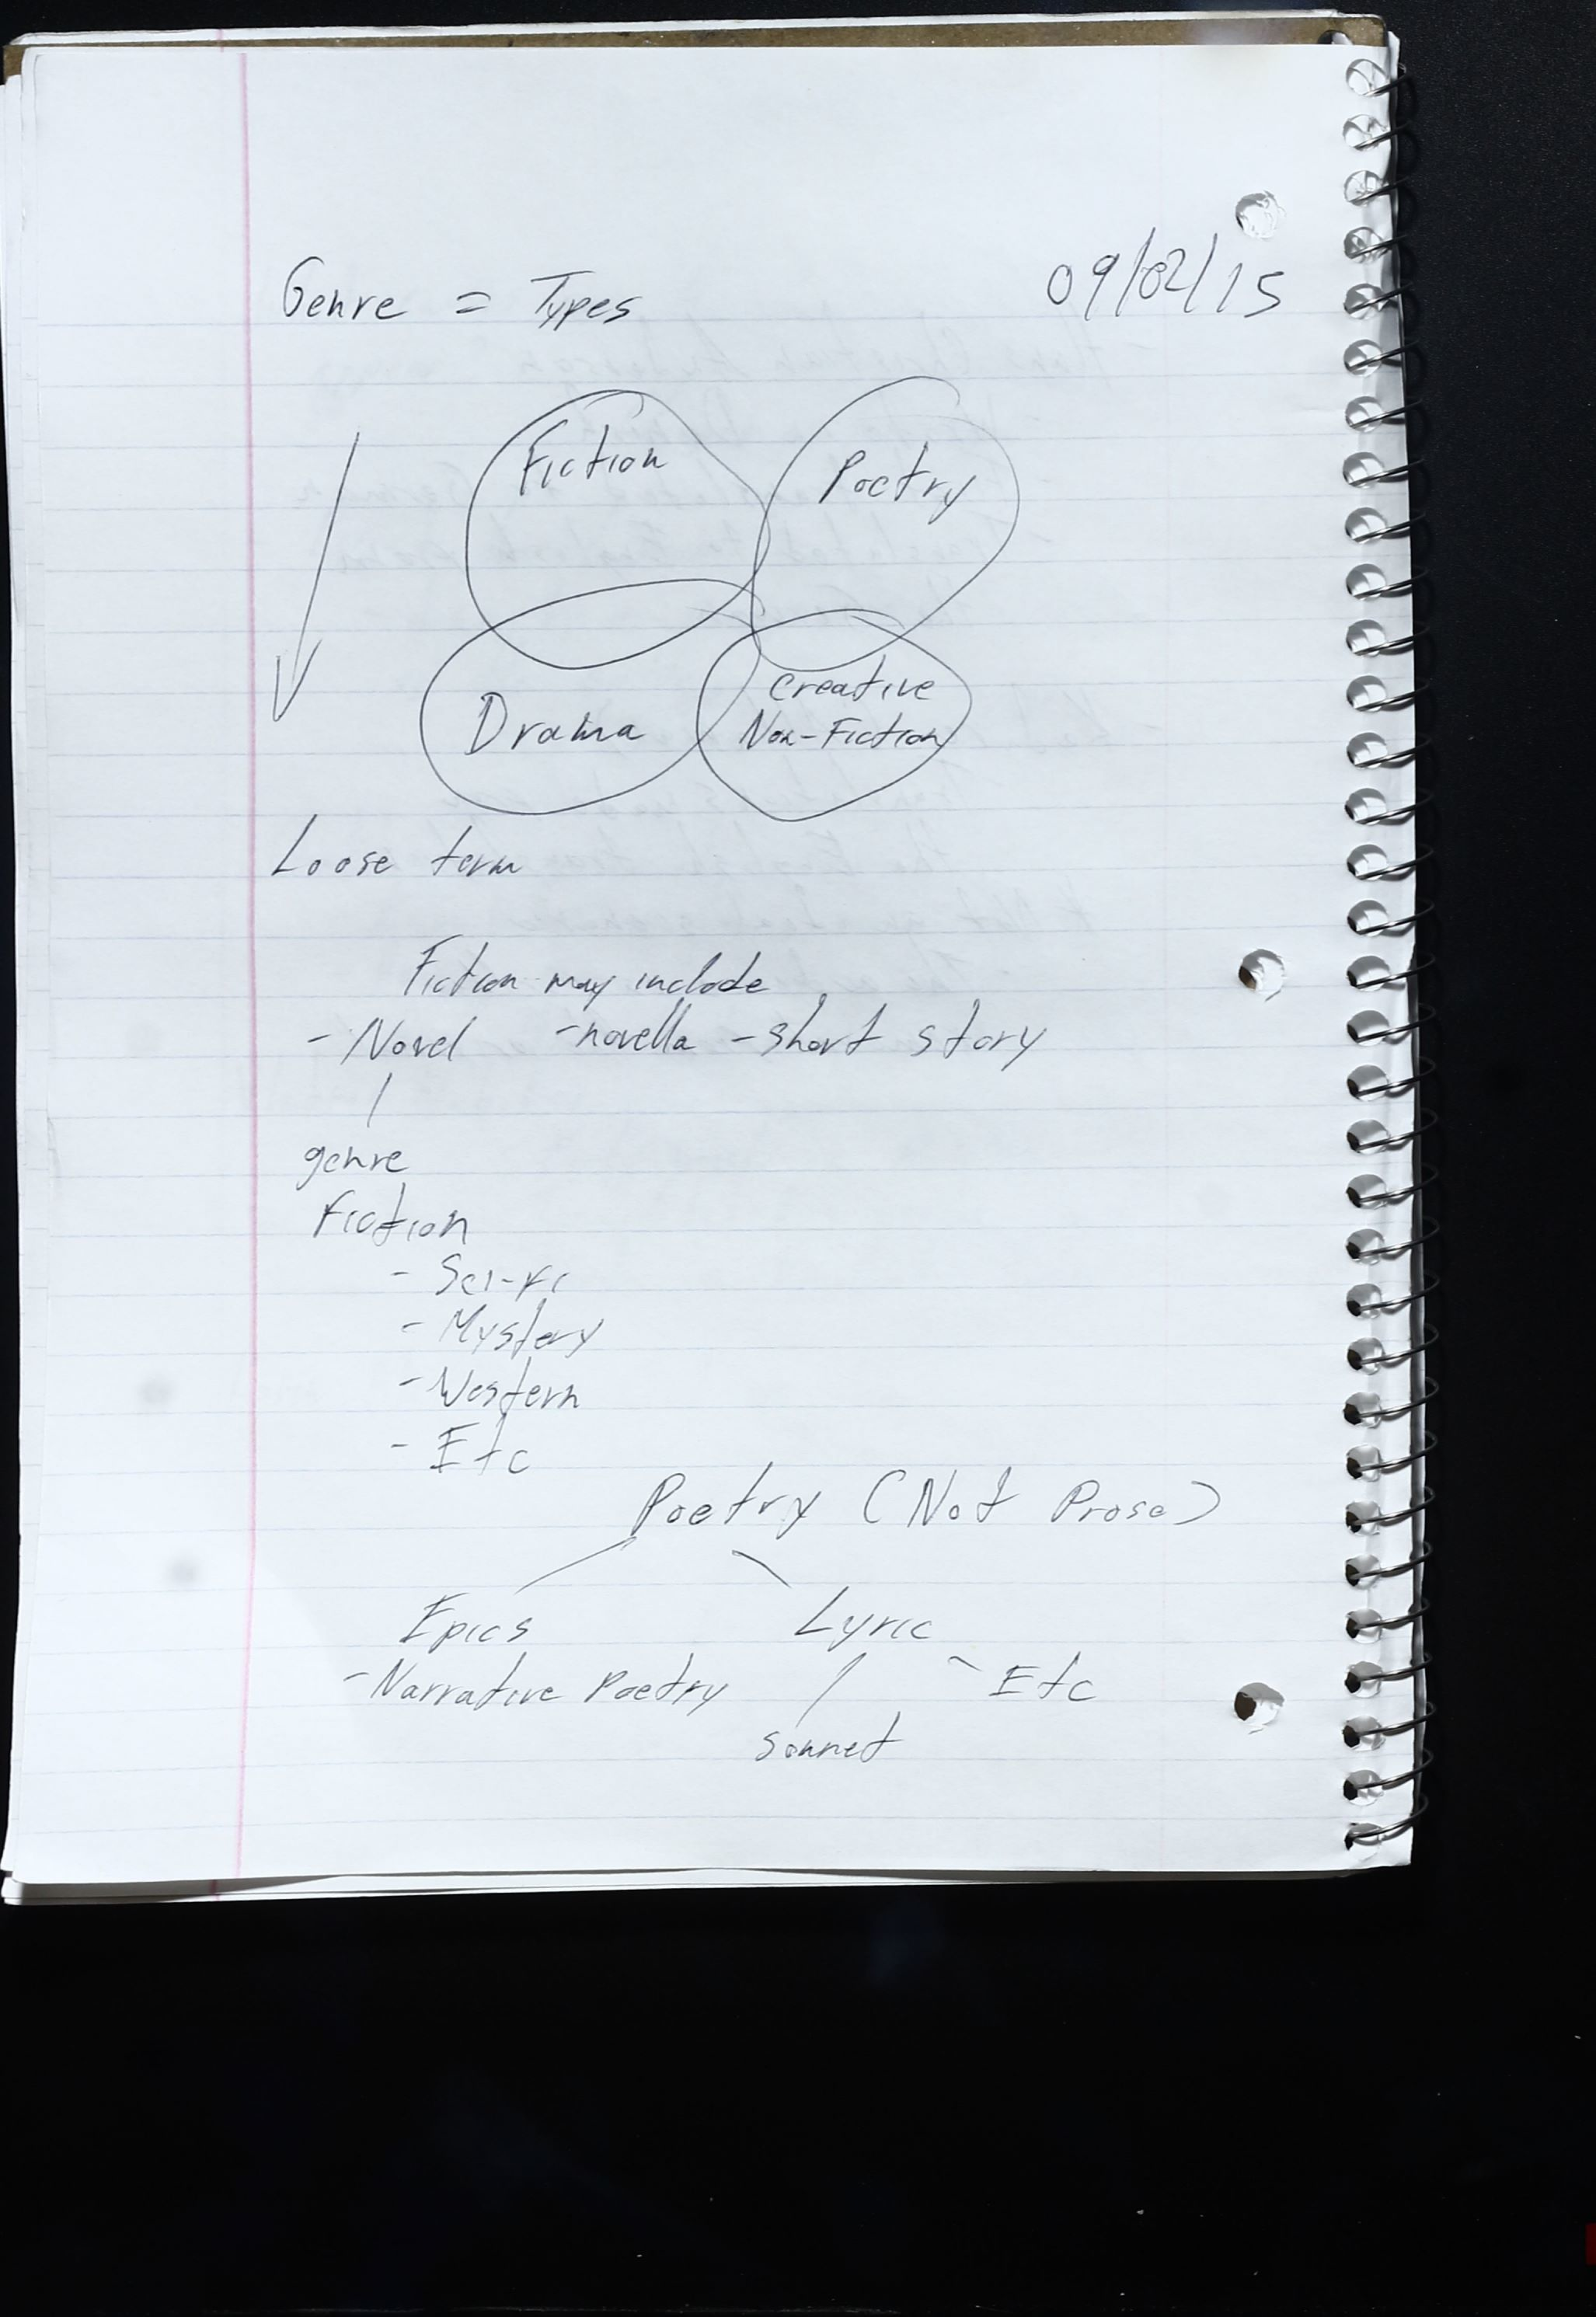 Genre = Types 09/02/15
Fiction Poetry
Drama Creative
Non-Fiction
Loose term
Fiction may include
- Novel - novella - short story
genre
Fiction
- Sci-Fi
- Mystery
- Western
- Etc
Poetry (Not Prose)
Epics Lyric
- Narrative Poetry Etc
sonnet